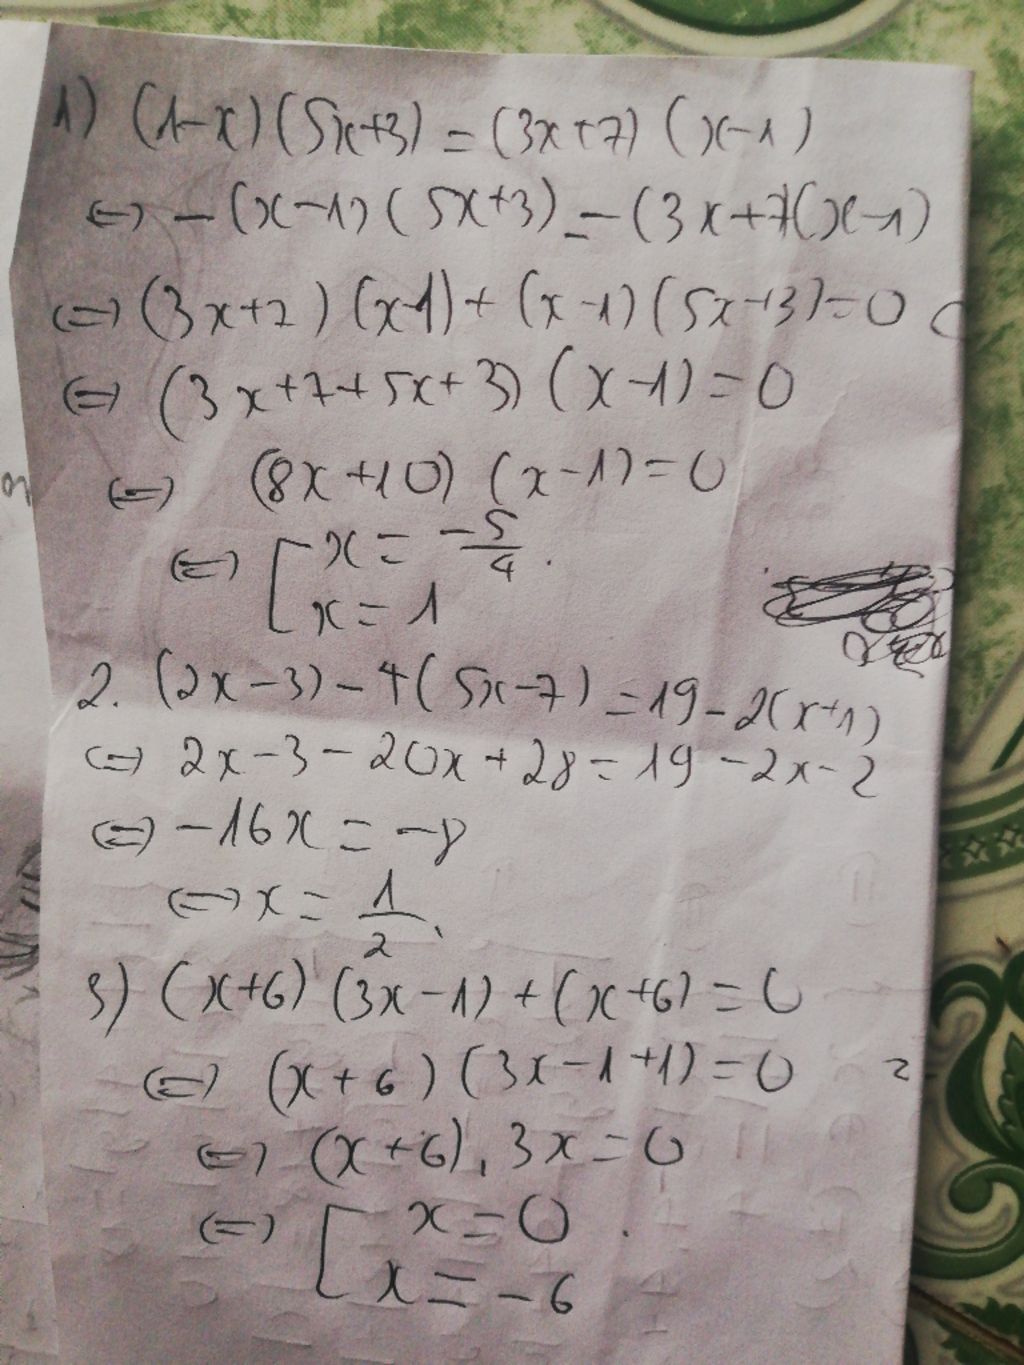 1) (1-x)(5x+3) = (3x+7)(x-1)
⇔ -(x-1)(5x+3) = (3x+7(x-1)
⇔ (3x+7)(x-1) + (x-1)(5x+3) = 0
⇔ (3x+7+5x+3)(x-1) = 0
⇔ (8x+10)(x-1) = 0
⇔ [ x = -5/4 .
x = 1
2. (2x-3) - 4(5x-7) = 19 - 2(x+1)
⇔ 2x - 3 - 20x + 28 = 19 - 2x - 2
⇔ -16x = -8
⇔ x = 1/2
3) (x+6)(3x-1) + (x+6) = 0
⇔ (x+6)(3x-1+1) = 0
⇔ (x+6).3x = 0
⇔ [ x = 0 .
x = -6